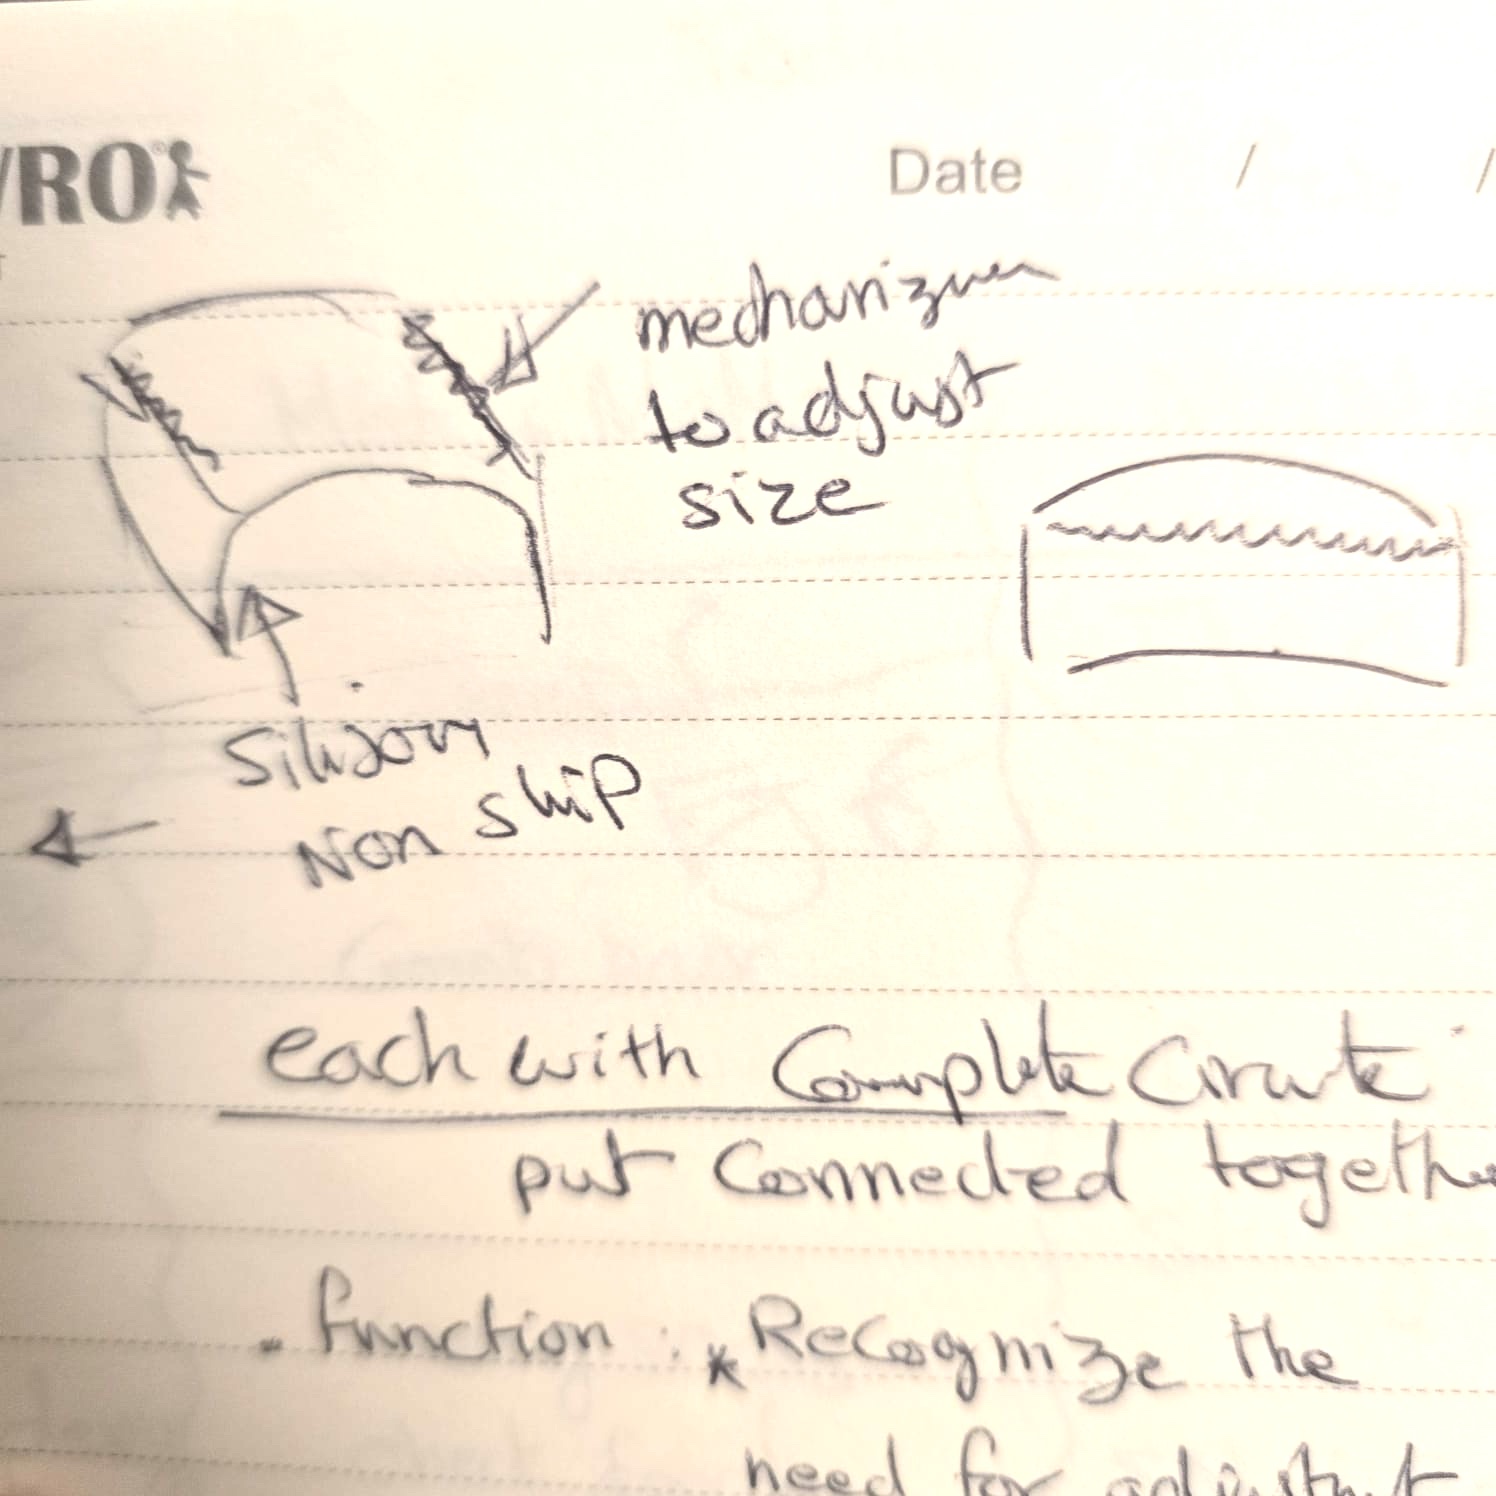 VRO
Date / /
mechanizm
to adjust
size
Silicon
Non slip
each with Complete Circute
put Connected together
. function : * Recognize the
need for adjustment